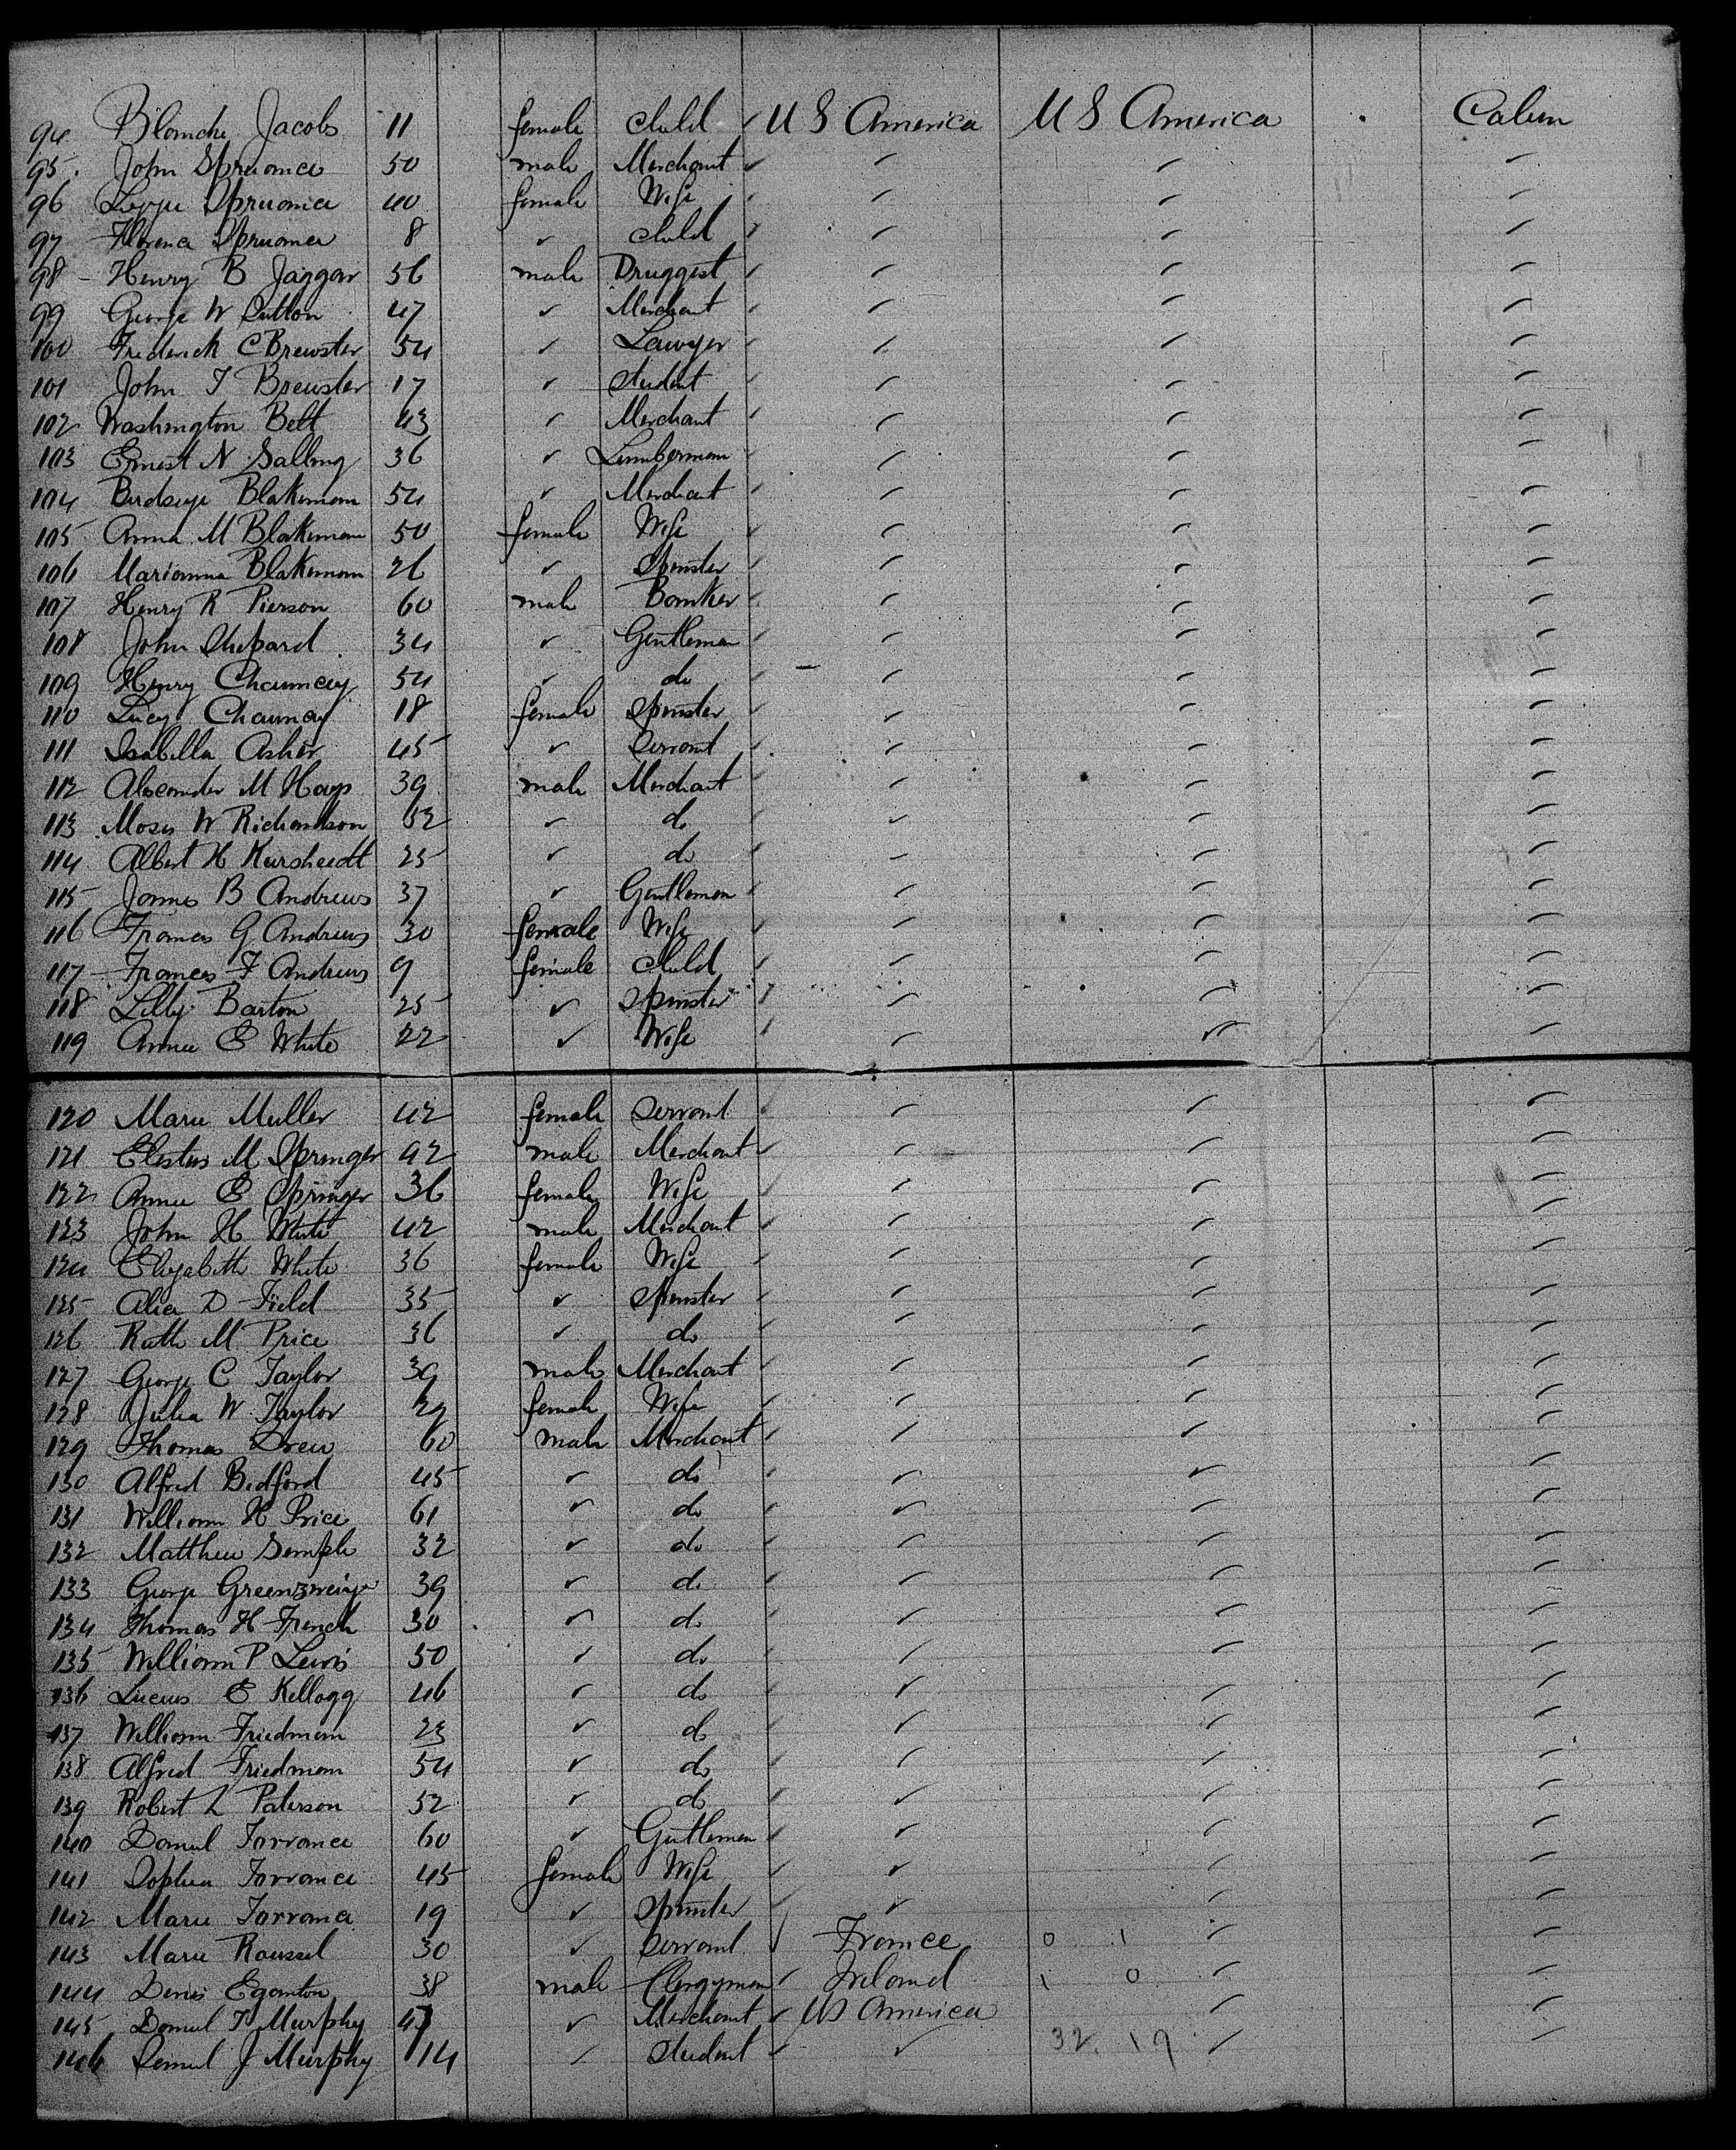 94 Blanche Jacobs 11 female child ✓ U S America U S America Cabin
95. John Spruance 50 male Merchant ✓ ✓ ✓ ✓
96 Lizzie Spruance 40 female Wife ✓ ✓ ✓
97 Florence Spruance 8 ✓ child ✓ ✓ ✓ ✓
98 - Henry B Jaggar 56 male Druggist ✓ ✓ ✓ ✓
99 George W Sutton 47 ✓ Merchant ✓ ✓ ✓ ✓
100 Frederick C Brewster 54 ✓ Lawyer ✓ ✓ ✓ ✓
101 John F Brewster 17 ✓ Student ✓ ✓ ✓ ✓
102 Washington Belt 43 ✓ Merchant ✓ ✓ ✓ ✓
103 Ernest N Salling 36 ✓ Lumberman ✓ ✓ ✓ ✓
104 Birdseye Blakeman 54 ✓ Merchant ✓ ✓ ✓ ✓
105 Anna M Blakeman 50 female Wife ✓ ✓ ✓ ✓
106 Marianna Blakeman 26 ✓ Spinster ✓ ✓ ✓ ✓
107 Henry R Pierson 60 male Banker ✓ ✓ ✓ ✓
108 John Shepard 34 ✓ Gentleman ✓ ✓ ✓ ✓
109 Henry Chauncey 54 ✓ do ✓ ✓ ✓ ✓
110 Lucy Chauncey 18 female Spinster ✓ ✓ ✓ ✓
111 Isabella Asher 45 ✓ Servant ✓ ✓ ✓ ✓
112 Alexander M Hays 39 male Merchant ✓ ✓ ✓ ✓
113 Moses W Richardson 52 ✓ do ✓ ✓ ✓ ✓
114 Albert H Kursheedt 25 ✓ do ✓ ✓ ✓ ✓
115 James B Andrews 37 ✓ Gentleman ✓ ✓ ✓ ✓
116 Frances G Andrews 30 female Wife ✓ ✓ ✓ ✓
117 Frances F Andrews 9 female child ✓ ✓ ✓ ✓
118 Lilly Barton 25 ✓ Spinster ✓ ✓ ✓ ✓
119 Annie E White 22 ✓ Wife ✓ ✓ ✓ ✓
120 Marie Muller 42 female Servant ✓ ✓ ✓ ✓
121 M Springer 42 male Merchant ✓ ✓ ✓ ✓
122 Annie E Springer 36 female Wife ✓ ✓ ✓ ✓
123 John H White 42 male Merchant ✓ ✓ ✓ ✓
124 Elizabeth White 36 female Wife ✓ ✓ ✓ ✓
125 Alice D Field 35 ✓ Spinster ✓ ✓ ✓ ✓
126 Ruth M Price 36 ✓ do ✓ ✓ ✓ ✓
127 George C Taylor 39 male Merchant ✓ ✓ ✓ ✓
128 Julia W Taylor 29 female Wife ✓ ✓ ✓ ✓
129 Thomas Drew 60 male Merchant ✓ ✓ ✓ ✓
130 Alfred Bedford 45 ✓ do ✓ ✓ ✓ ✓
131 William H Price 61 ✓ do ✓ ✓ ✓ ✓
132 Matthew Semple 32 ✓ do ✓ ✓ ✓ ✓
133 George 39 ✓ do ✓ ✓ ✓ ✓
134 Thomas H French 30 ✓ do ✓ ✓ ✓ ✓
135 William P Lewis 50 ✓ do ✓ ✓ ✓ ✓
136 Lucius E Kellogg 46 ✓ do ✓ ✓ ✓ ✓
137 William Friedman 23 ✓ do ✓ ✓ ✓ ✓
138 Alfred Friedman 54 ✓ do ✓ ✓ ✓ ✓
139 Robert L Paterson 52 ✓ do ✓ ✓ ✓ ✓
140 Daniel Torrance 60 ✓ Gentleman ✓ ✓ ✓ ✓
141 Sophia Torrance 45 female Wife ✓ ✓ ✓ ✓
142 Marie Torrance 19 ✓ Spinster ✓ ✓ ✓ ✓
143 Marie Roussel 30 ✓ Servant ✓ France 0 1 ✓ ✓
144 Denis Eganton 38 male Clergyman ✓ Ireland 1 0 ✓ ✓
145 Daniel T Murphy 47 ✓ Merchant ✓ US America ✓ ✓
146 Daniel J Murphy 14 ✓ Student ✓ ✓ 32. 19 ✓ ✓